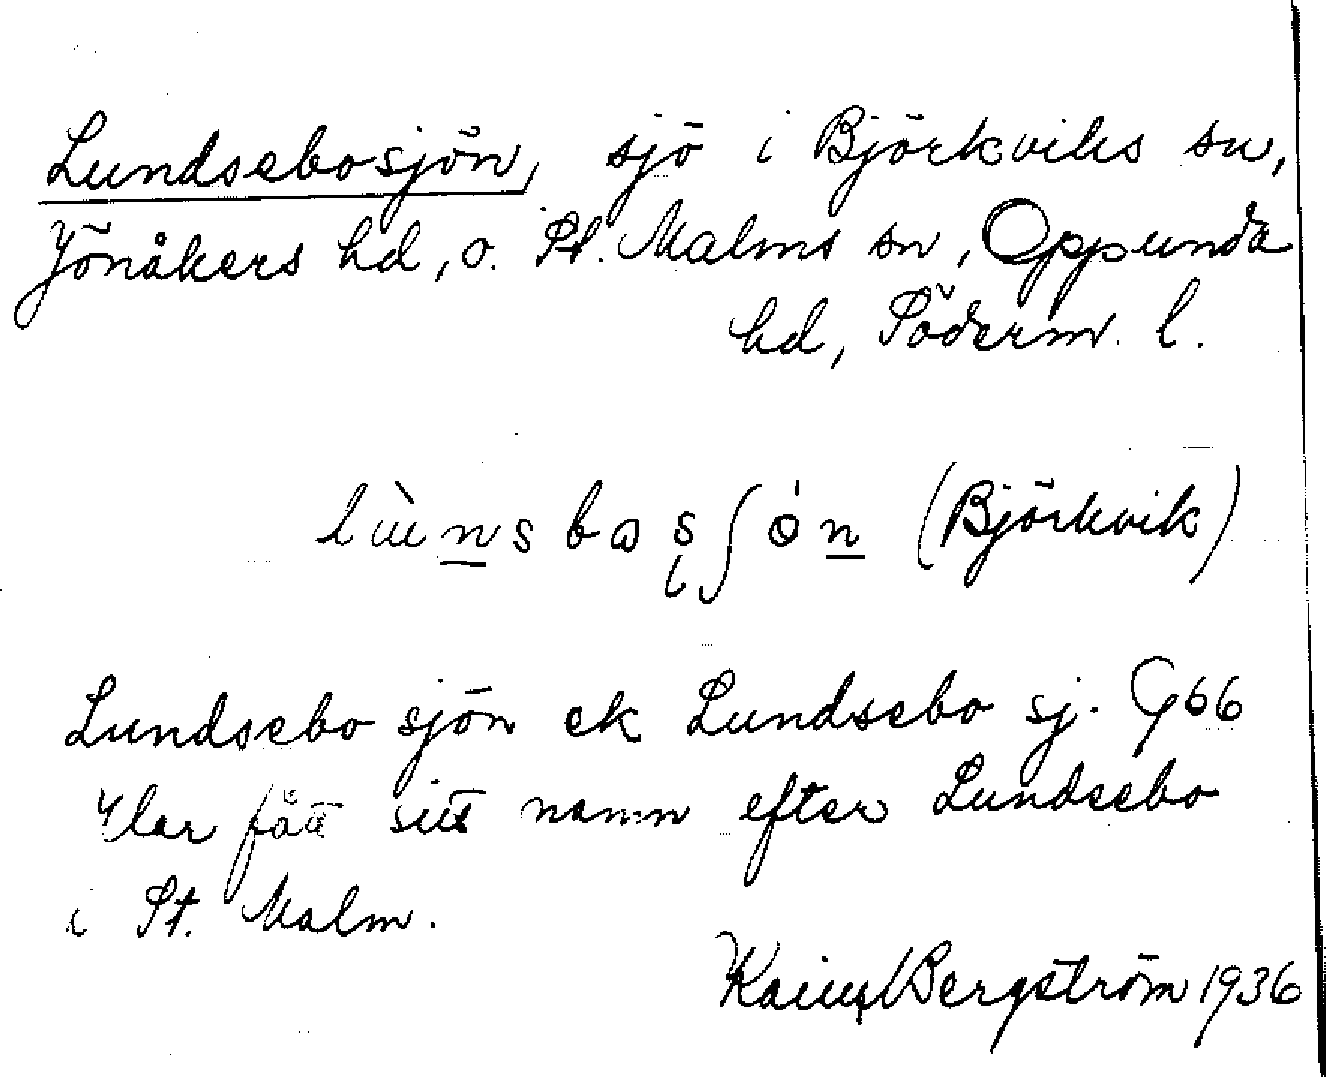 Lundsebosjön, sjö i Björkviks sn,
Jönåkers hd, o. St. Malms sn, Oppunda
hd, Söderm. l.
(Björkvik)
Lundsebo sjön ek Lundsebo sj. G66
Har fått sitt namn efter Lundsebo
i St. Malm.
Bergström 1936